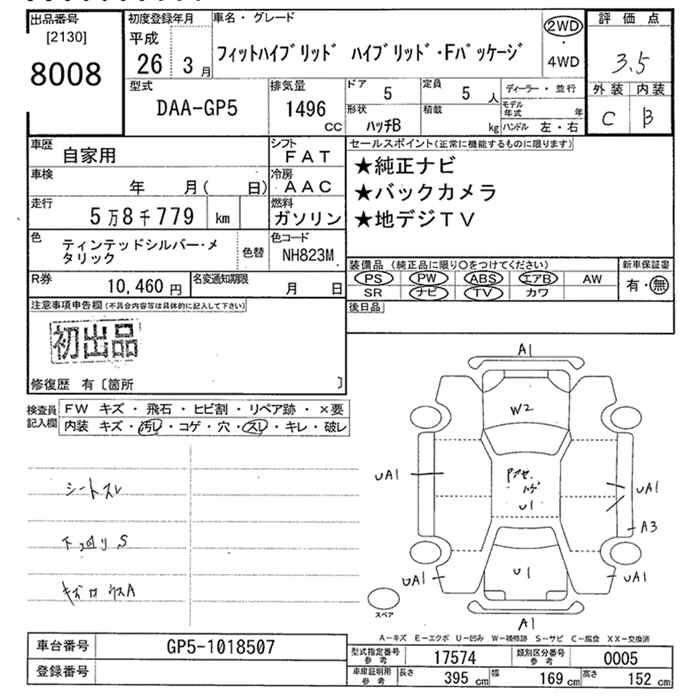 出品番号 初度登録年月 車名・グレード 評価点
[2130] 平成 フィットハイブリッド ハイブリッド・Fパッケージ 2WD・4WD
8008 26 3月 3.5
型式 排気量 ドア 定員 ディーラー・並行 外装 内装
DAA-GP5 1496 CC 5 5人 モデル年式 年 C B
形状 積載 kg ハンドル 左・右
ハッチB
車歴 自家用 シフト FAT セールスポイント(正常に機能するものに限ります)
車検 年 月( 日) 冷房 AAC ★純正ナビ
走行 5万8千779 km 燃料 ガソリン ★バックカメラ
★地デジTV
色 ティンテッドシルバー・メタリック 色替 色コード NH823M
装備品 (純正品に限り○をつけてください) 新車保証書
PS PW ABS エアB AW 有・無
SR ナビ TV カワ
R券 10,460円 名変通知期限 月 日
後日品
注意事項申告欄(不具合内容等は具体的に記入して下さい)
初出品
修復歴 有〔箇所 〕
検査員記入欄 FW キズ・飛石・ヒビ割・リペア跡・×要
内装 キズ・汚レ・コゲ・穴・スレ・キレ・破レ
A1
W2
UA1 U1 UA1
A3
シートスレ
下回りS
UA1 U1 UA1
スペア
A1
A-キズ E-エクボ U-凹み W-補修跡 S-サビ C-腐食 XX-交換済
車台番号 GP5-1018507
型式指定番号 参考 17574 類別区分番号 参考 0005
登録番号
車庫証明用 参考 長さ 395 cm 幅 169 cm 高さ 152 cm